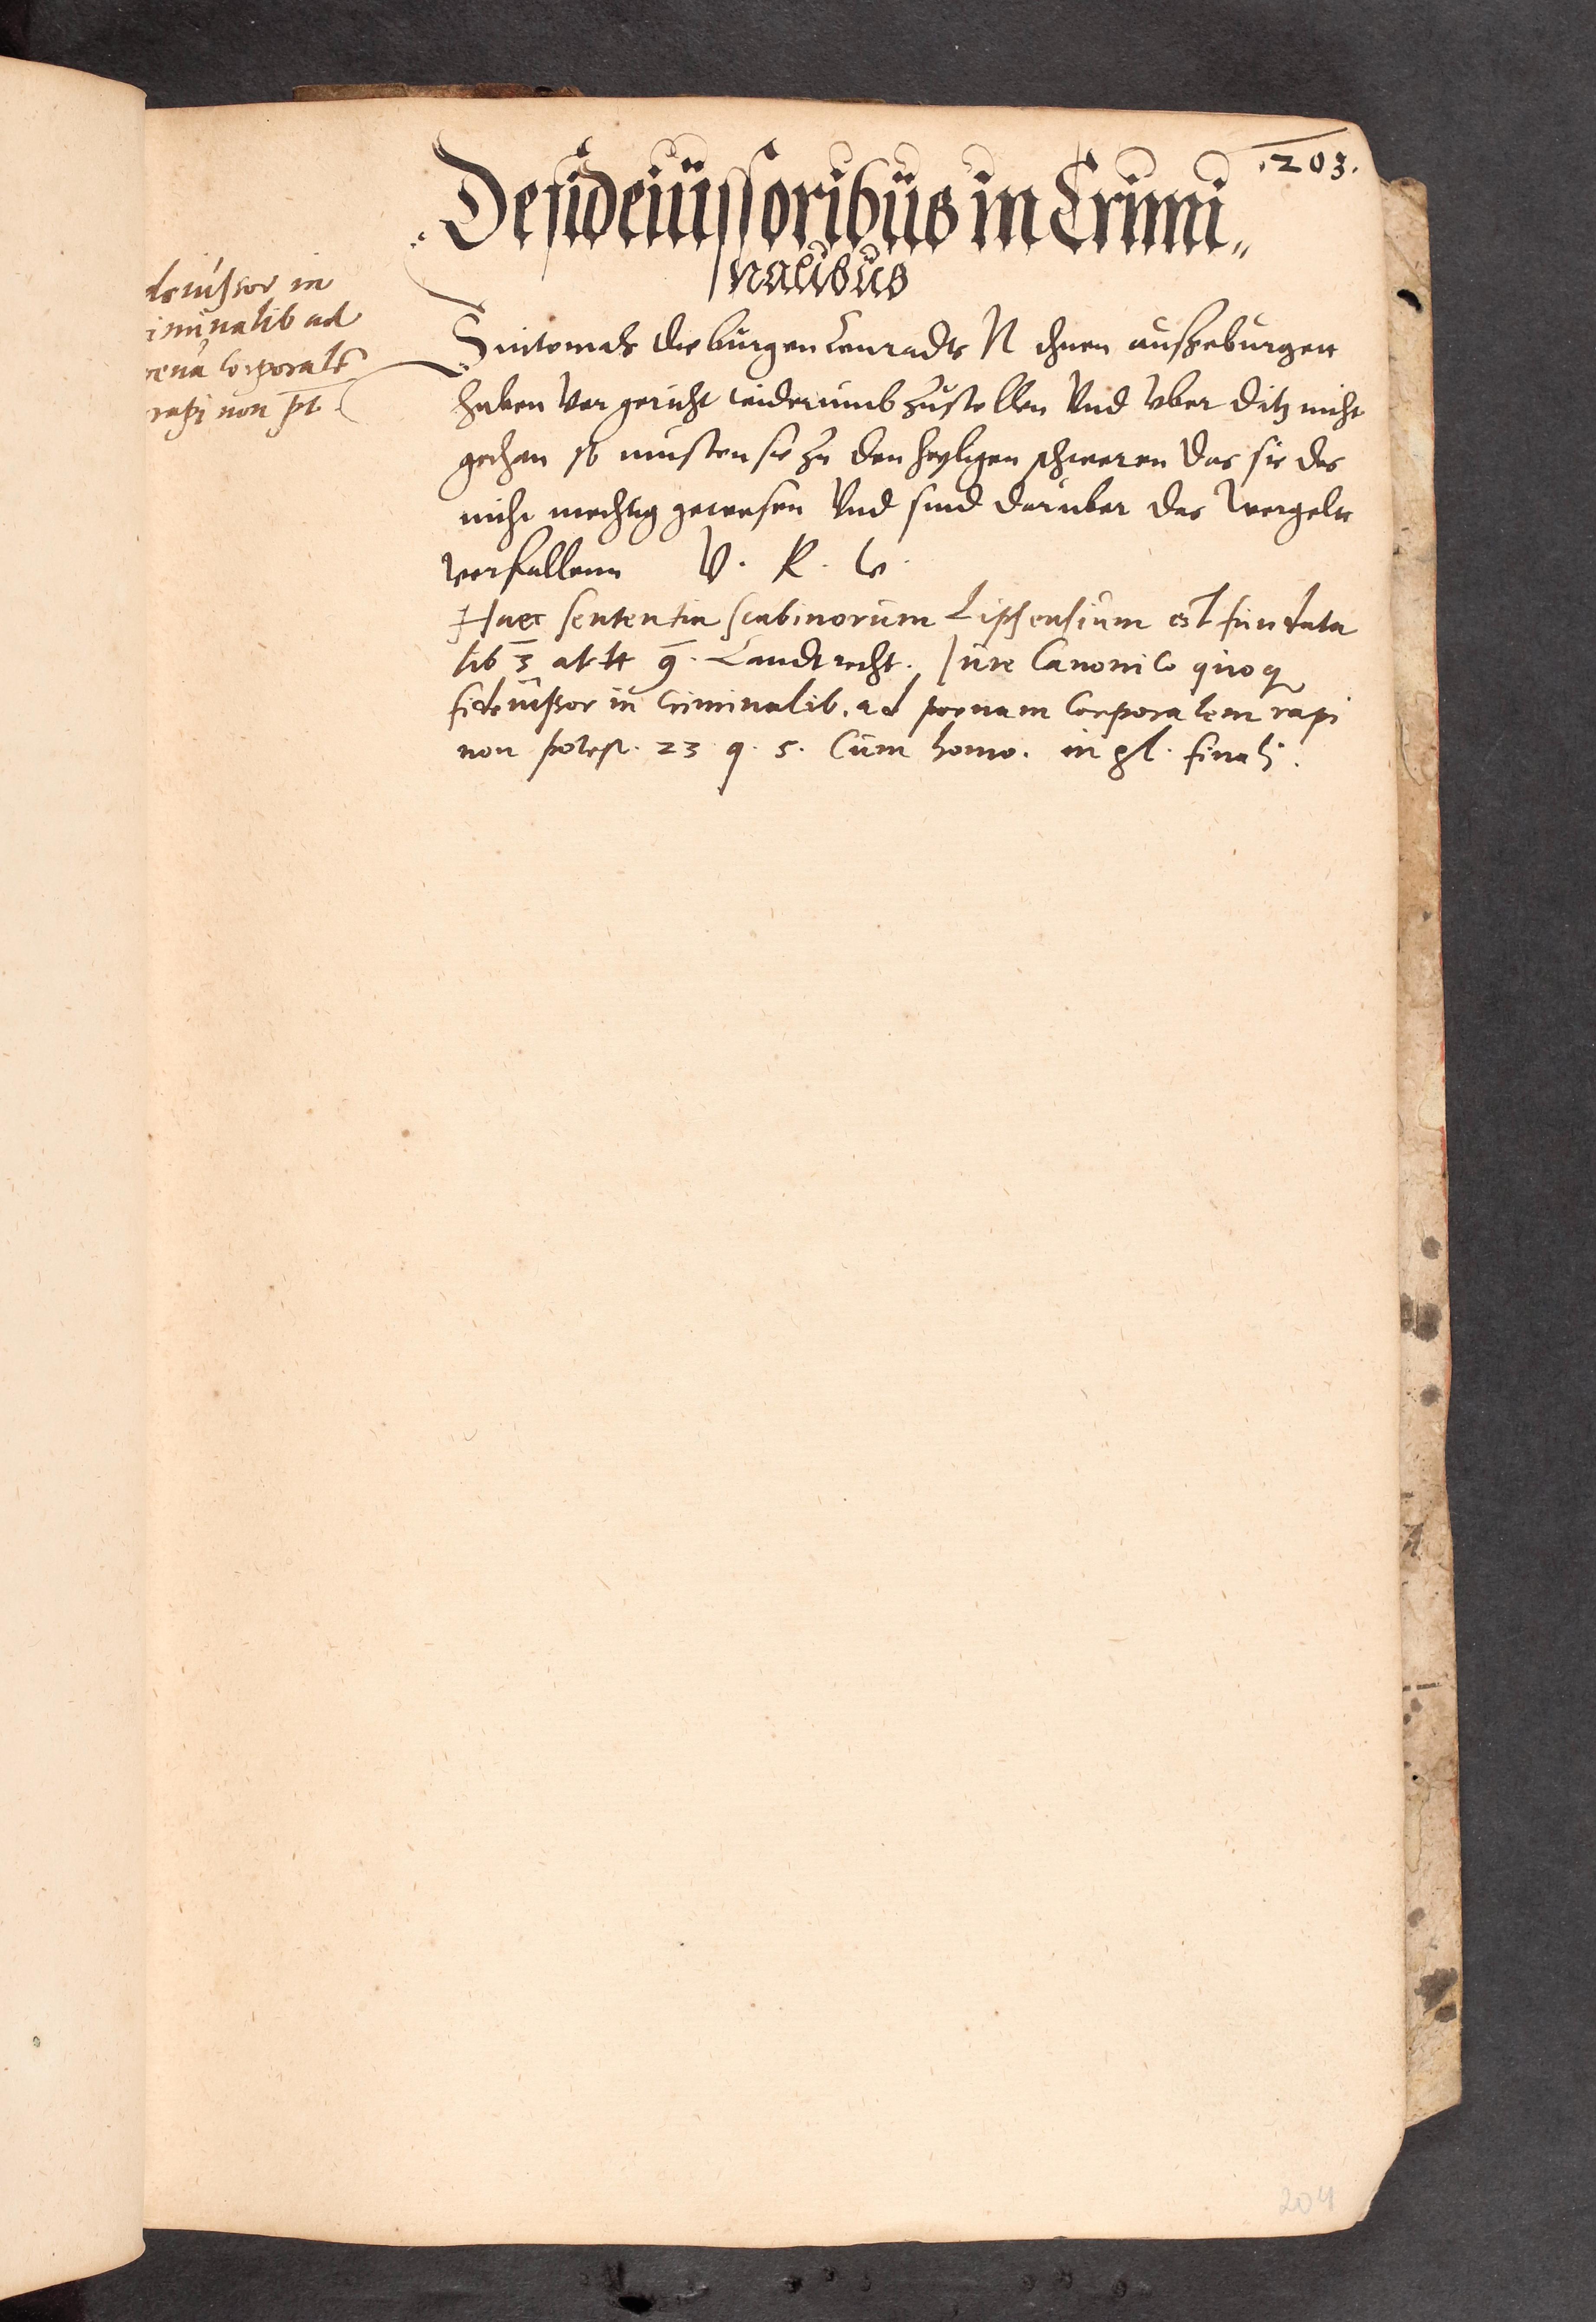 .203.
De fideiüssoribüs in Crimi„
nalibüs
deiussor in
iminalib ad
oenā Corporalē
rapi non pt.
Sintemals die bürgen Conradts N ihnen außzeburgen
haben vor gericht widerumb zustellen Vnd vber ditz nicht
gethan so müsten sie zu den heyligen schweren das sie des
nicht mechtig gewesen Vnd sind daruber das wergelt
verfallenn V. R. W.
Haec sententia scabinorum Lipsensium est fundata
lib 3 artt 9. Landtrecht. Jure Canonico quoq
fideiußor in Criminalib. ad poenam Corporalem rapi
non potest. 23 q. 5. Cum homo. in gl. finali.
204